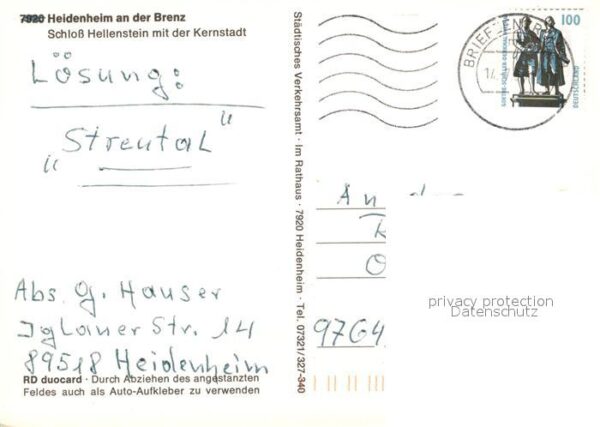 7920 Heidenheim an der Brenz
Schloß Hellenstein mit der Kernstadt
Lösung:
"Streutal"
Abs. G. Hauser
Iglauer Str. 14
89518 Heidenheim
RD duocard · Durch Abziehen des angestanzten
Feldes auch als Auto-Aufkleber zu verwenden
Städtisches Verkehrsamt · Im Rathaus · 7920 Heidenheim · Tel. 07321/327-340
BRIEFZEN
100
DEUTSCHLAND
An
9764
privacy protection
Datenschutz